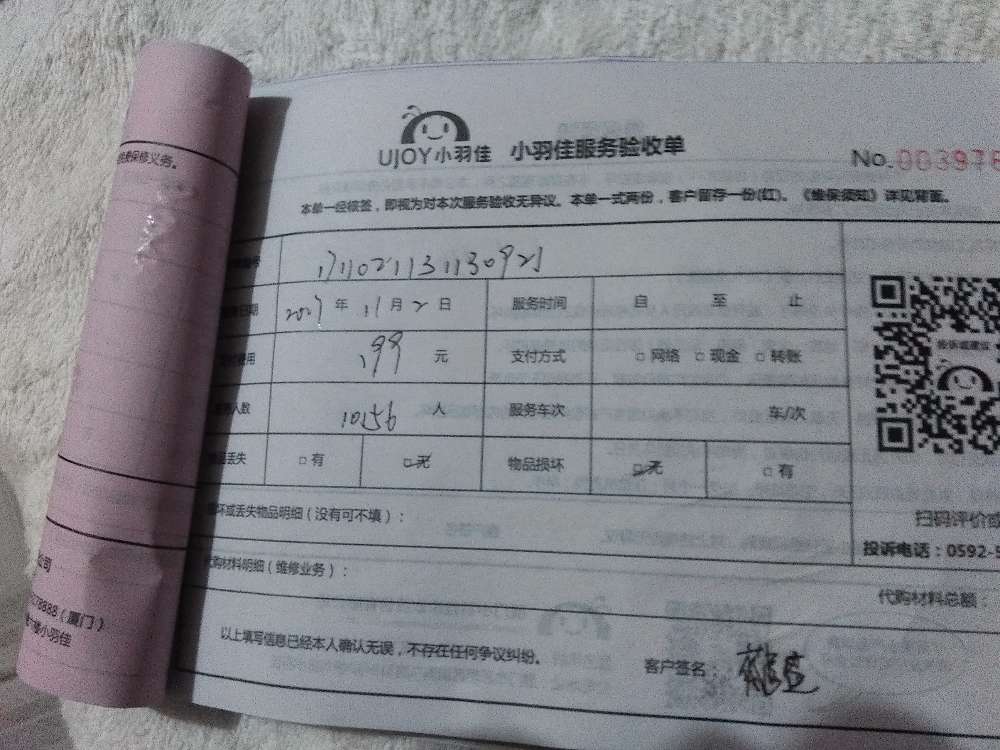 UJOY小羽佳 小羽佳服务验收单
No.003976
本单一经核签，即视为对本次服务验收无异议。本单一式两份，客户留存一份(红)。《维保须知》详见背面。
保修义务。
日期 年 11月2日 服务时间 自 至 止
费用 199 元 支付方式 □网络 □现金 □转账
人数 10156 人 服务车次 车/次
丢失 □有 □无 物品损坏 □无 □有
投诉或建议
坏或丢失物品明细（没有可不填）：
扫码评价或
投诉电话：0592-5
代购材料明细（维修业务）：
代购材料总额：
公司
78888（厦门）
楼小羽佳
以上填写信息已经本人确认无误，不存在任何争议纠纷。
客户签名：